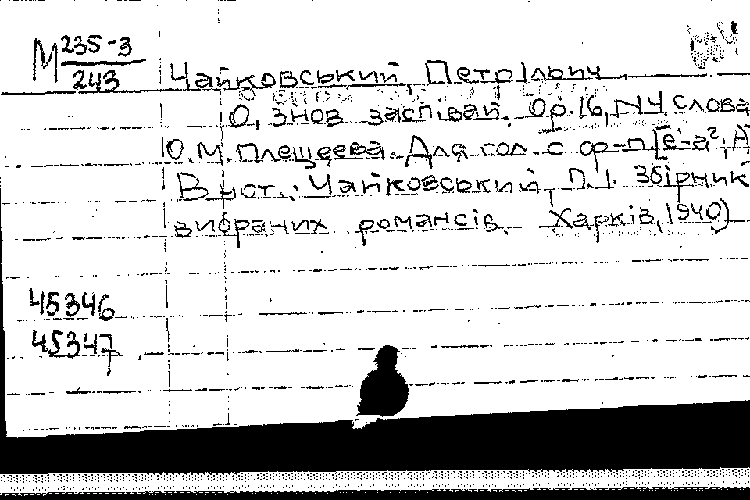 М 235-3
243
Чайковський, Петр Ільич
О, знов заспівай. Op.16, N4 Слова
О.М. Плещеева. Для гол. с ор-п [е'-а², А
В ист.: Чайковський, П. І. Збірник
вибраних романсів. Харків, 1940)
45346
45347